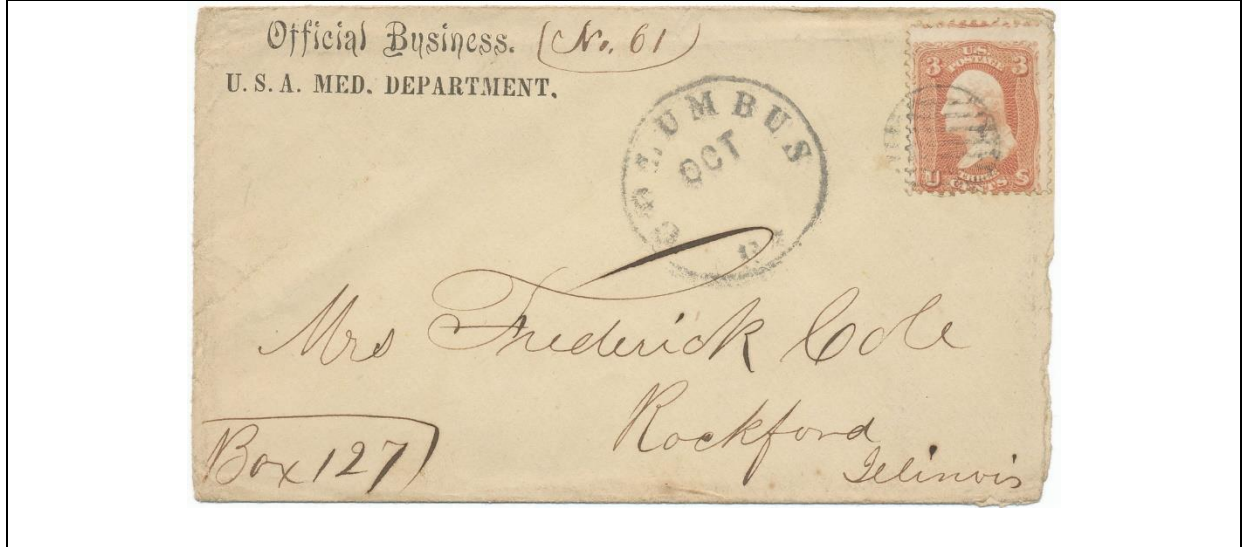 Official Business. (No. 61)
U. S. A. MED. DEPARTMENT.
COLUMBUS
OCT
U.S.
POSTAGE
3 3
THREE
U CENTS S
Mrs Frederick Cole
Rockford
Illinois
Box 127